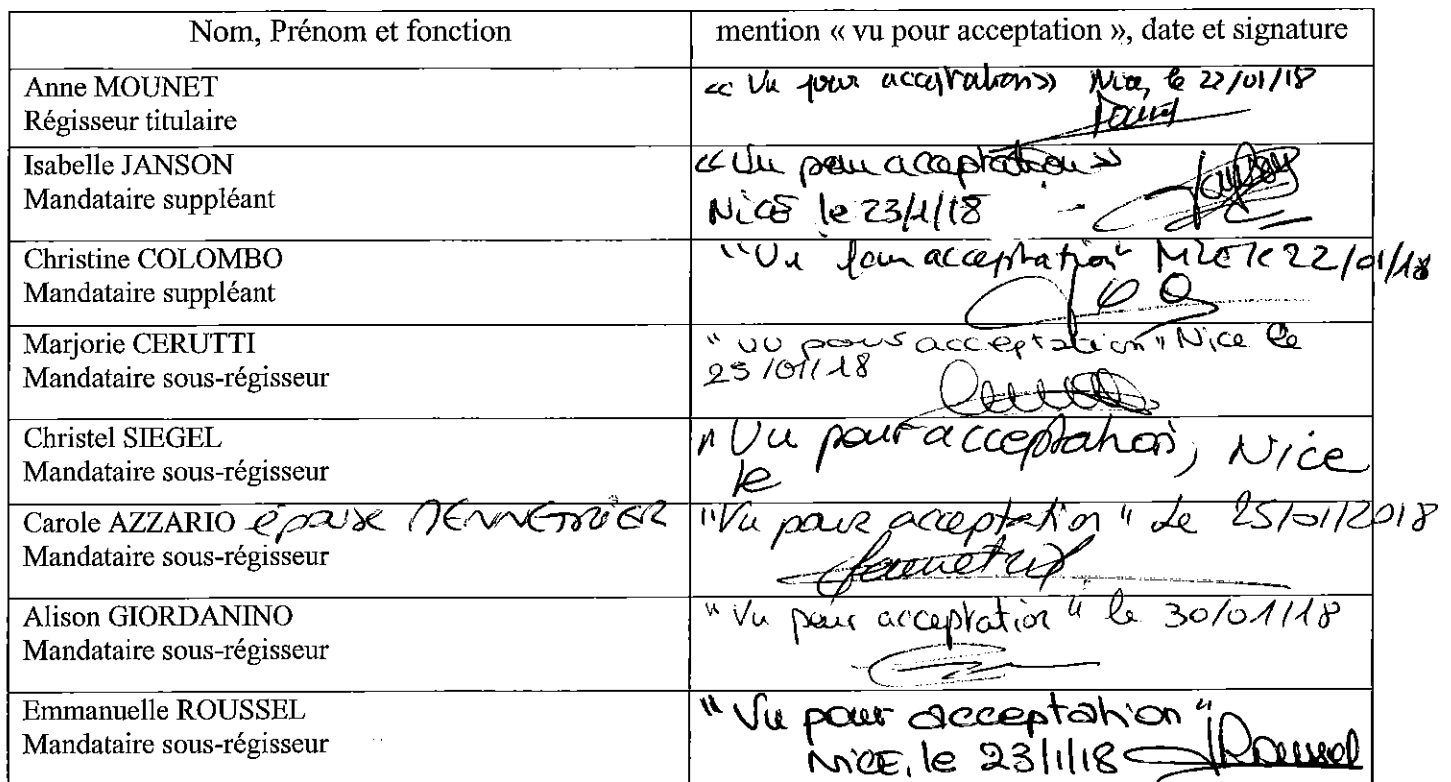 Nom, Prénom et fonction
mention « vu pour acceptation », date et signature
Anne MOUNET
Régisseur titulaire
« Vu pour acceptation» Nice, le 22/01/18
Isabelle JANSON
Mandataire suppléant
« Vu pour acceptation »
NiCE le 23/1/18
Christine COLOMBO
Mandataire suppléant
"Vu pour acceptation" NICE le 22/01/18
Marjorie CERUTTI
Mandataire sous-régisseur
"vu pour acceptation" Nice le
25/01/18
Christel SIEGEL
Mandataire sous-régisseur
"Vu pour acceptation, Nice
le
Carole AZZARIO épouse
Mandataire sous-régisseur
"Vu pour acceptation" Le 25/01/2018
Alison GIORDANINO
Mandataire sous-régisseur
"Vu pour acceptation" le 30/01/18
Emmanuelle ROUSSEL
Mandataire sous-régisseur
"Vu pour acceptation"
NICE, le 23/1/18 Roussel